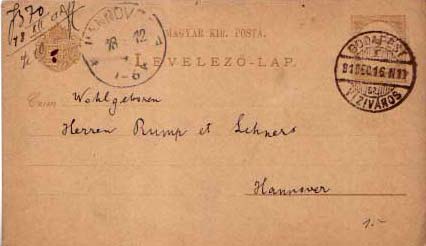 HANNOVER
18 12
7-8
MAGYAR KIR. POSTA.
LEVELEZŐ-LAP.
BUDAPEST
91 DEC 16 N 11
VIZIVÁROS
Czim
Wohlgeboren
Herren Rump et Lehners
Hannover
1.-